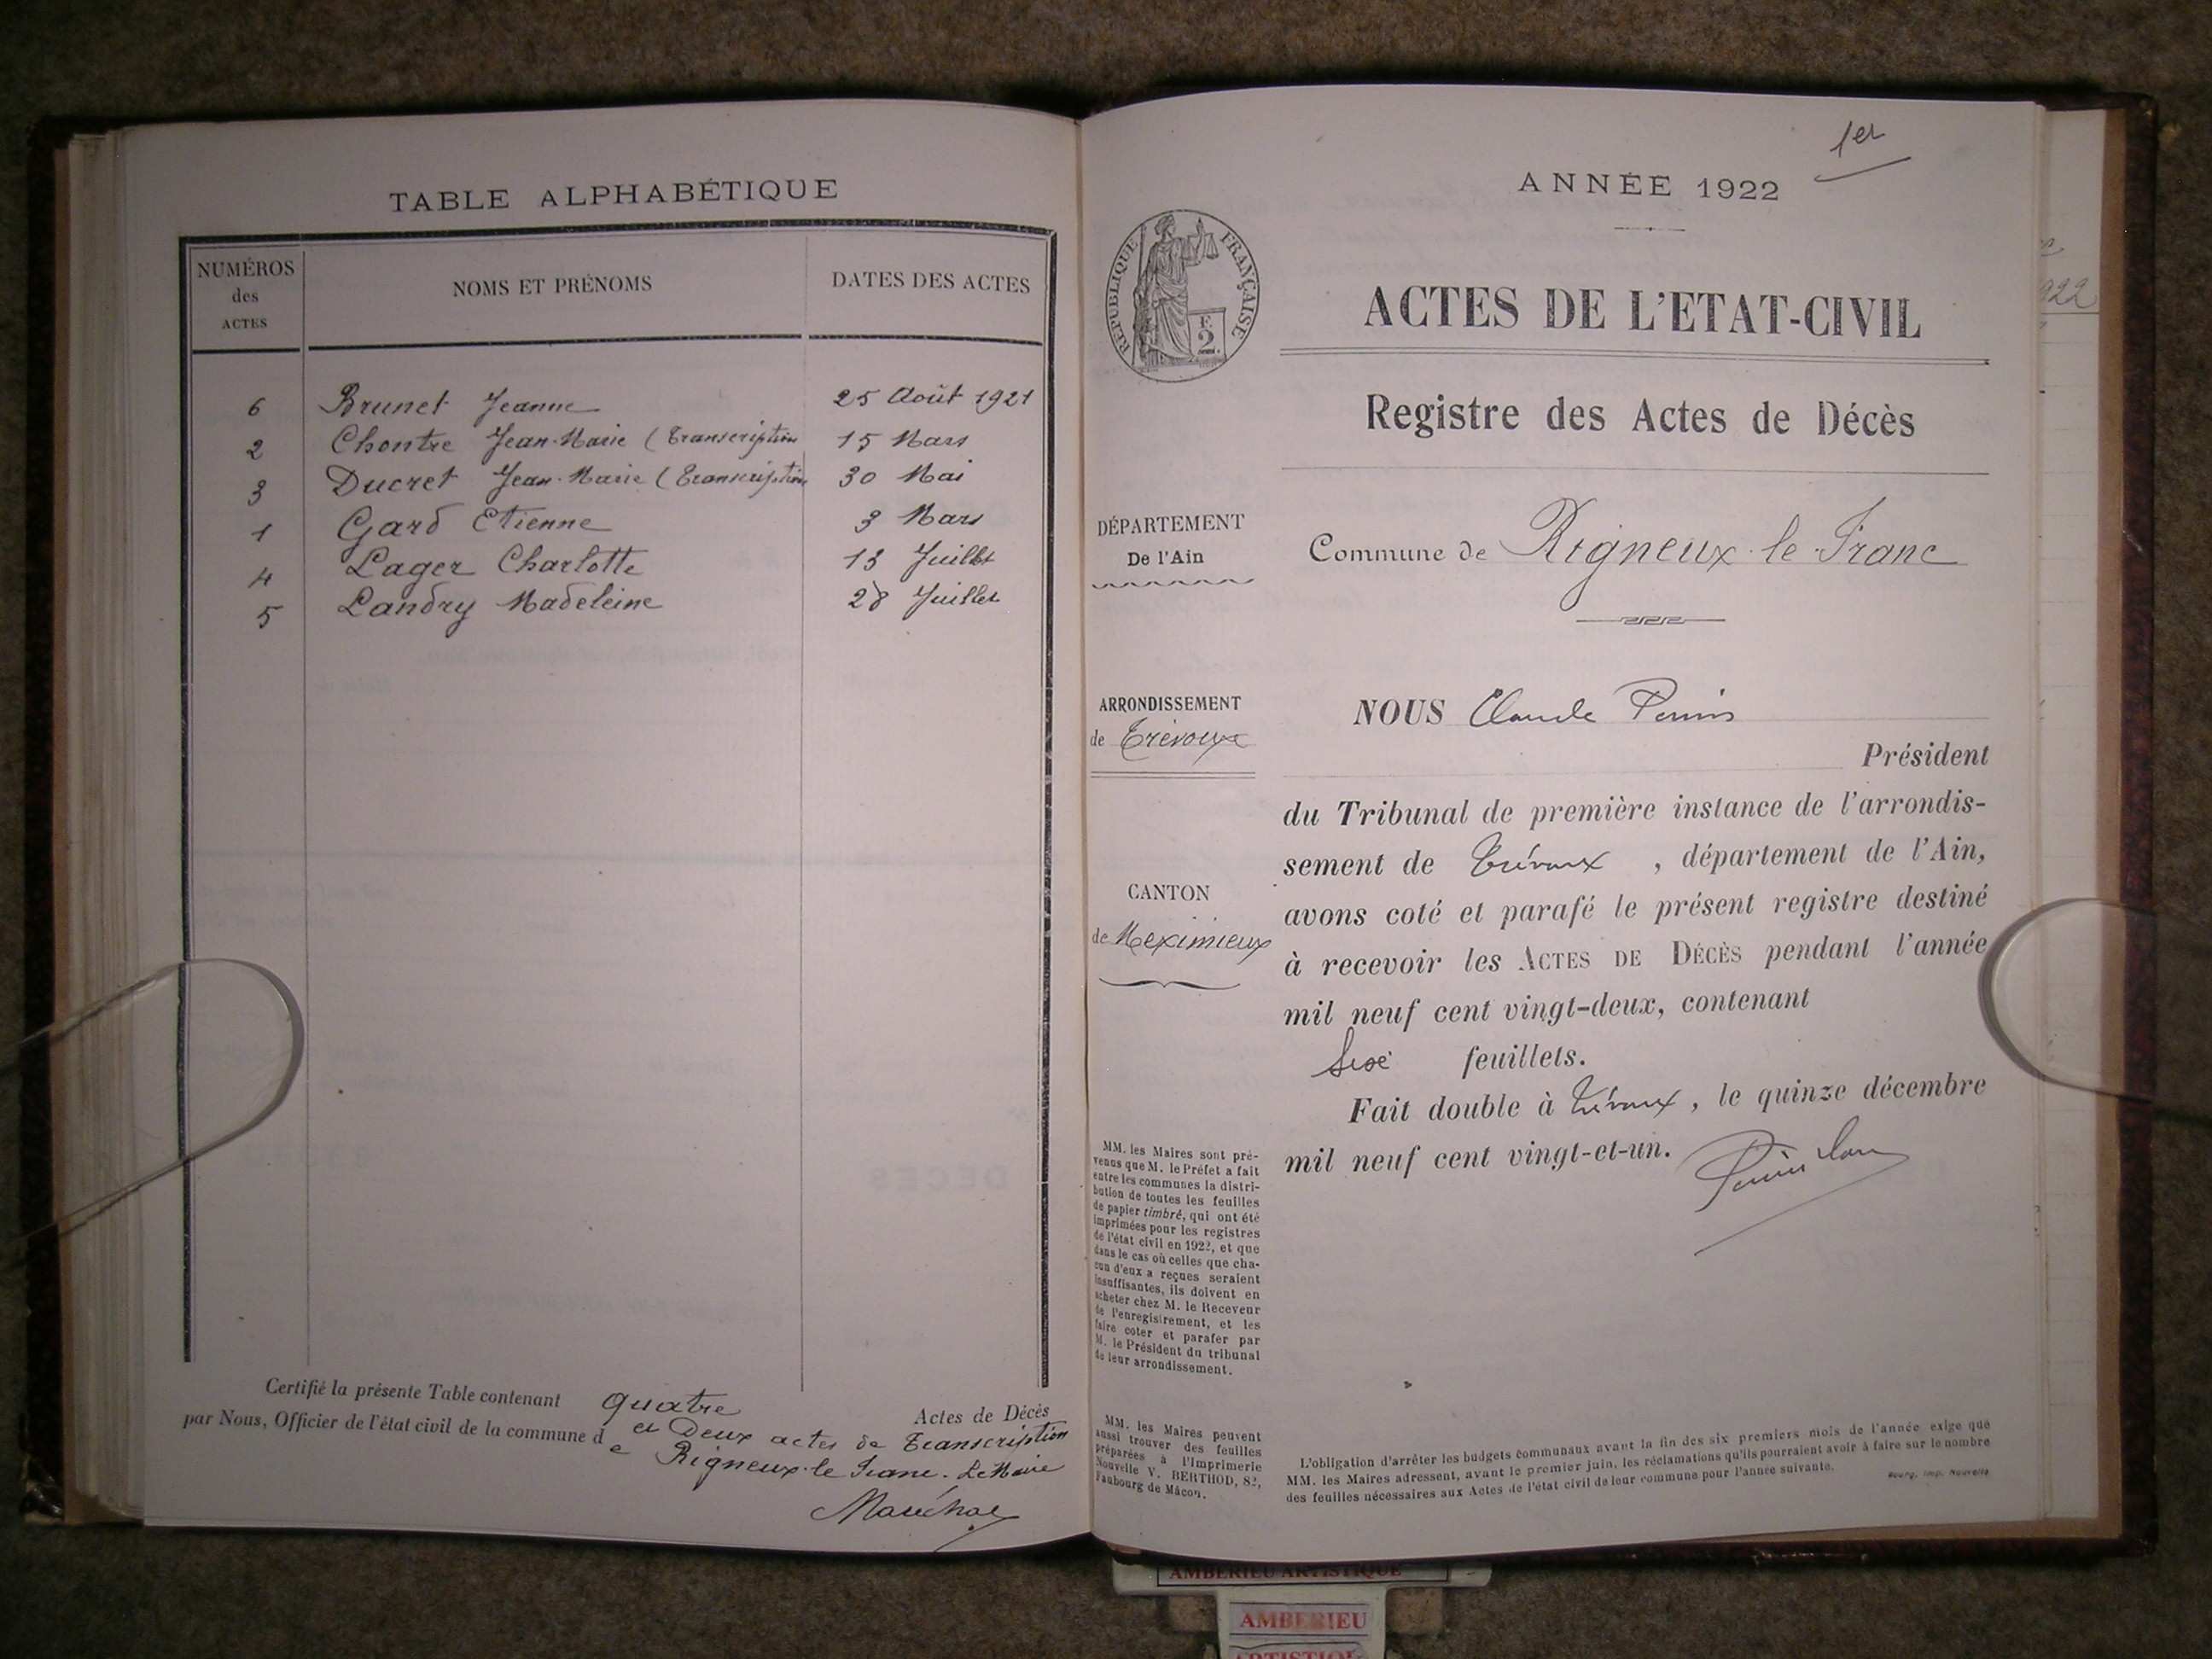 TABLE ALPHABÉTIQUE
NUMÉROS
des
ACTES
NOMS ET PRÉNOMS
DATES DES ACTES
6 Brunet Jeanne 25 Août 1921
2 Chontre Jean-Marie (Transcription 15 Mars
3 Ducret Jean-Marie (Transcription 30 Mai
1 Gard Etienne 3 Mars
4 Lager Charlotte 13 Juillet
5 Landry Madeleine 28 Juillet
Certifié la présente Table contenant quatre Actes de Décès
et Deux actes de Transcription
par Nous, Officier de l'état civil de la commune de Rigneux-le-Franc. Le Maire
Maréchal
1er
ANNÉE 1922
RÉPUBLIQUE FRANÇAISE
2
F.
ACTES DE L'ETAT-CIVIL
Registre des Actes de Décès
DÉPARTEMENT
De l'Ain
Commune de Rigneux-le-Franc
ARRONDISSEMENT
de Trévoux
CANTON
de Meximieux
NOUS Claude
Président
du Tribunal de première instance de l'arrondis-
sement de Trévoux , département de l'Ain,
avons coté et parafé le présent registre destiné
à recevoir les ACTES DE DÉCÈS pendant l'année
mil neuf cent vingt-deux, contenant
feuillets.
Fait double à Trévoux, le quinze décembre
mil neuf cent vingt-et-un.
MM. les Maires sont pré-
venus que M. le Préfet a fait
entre les communes la distri-
bution de toutes les feuilles
de papier timbré, qui ont été
imprimées pour les registres
de l'état civil en 1922, et que
dans le cas où celles que cha-
cun d'eux a reçues seraient
insuffisantes, ils doivent en
acheter chez M. le Receveur
de l'enregistrement, et les
faire coter et parafer par
M. le Président du tribunal
de leur arrondissement.
MM. les Maires peuvent
aussi trouver des feuilles
préparées à l'Imprimerie
Nouvelle V. BERTHOD, 82,
Faubourg de Mâcon.
L'obligation d'arrêter les budgets communaux avant la fin des six premiers mois de l'année exige que
MM. les Maires adressent, avant le premier juin, les réclamations qu'ils pourraient avoir à faire sur le nombre
des feuilles nécessaires aux Actes de l'état civil de leur commune pour l'année suivante.
Bourg, Imp. Nouvelle
922
AMBERIEU ARTISTIQUE
AMBERIEU
ARTISTIQUE